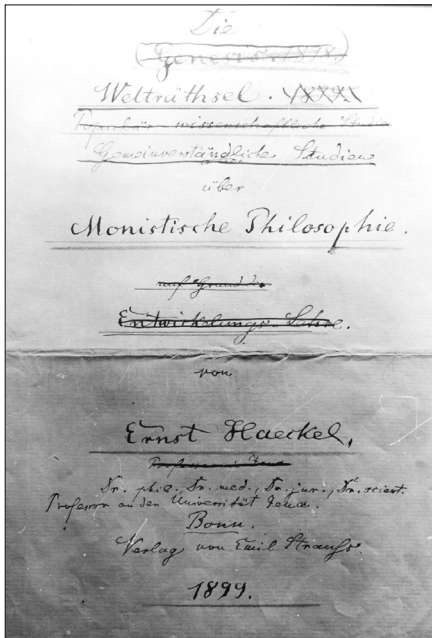 Die
(Genesis 1898.)
Welträthsel. 1899.
Populär-wissenschaftliche Studien
Gemeinverständliche Studien
über
Monistische Philosophie.
auf Grund der
Entwickelungs-Lehre.
von
Ernst Haeckel,
Professor in Jena
Dr. phil., Dr. med., Dr. jur., Dr. scient.
Professor an der Universität Jena.
Bonn.
Verlag von Emil Strauß
1899.